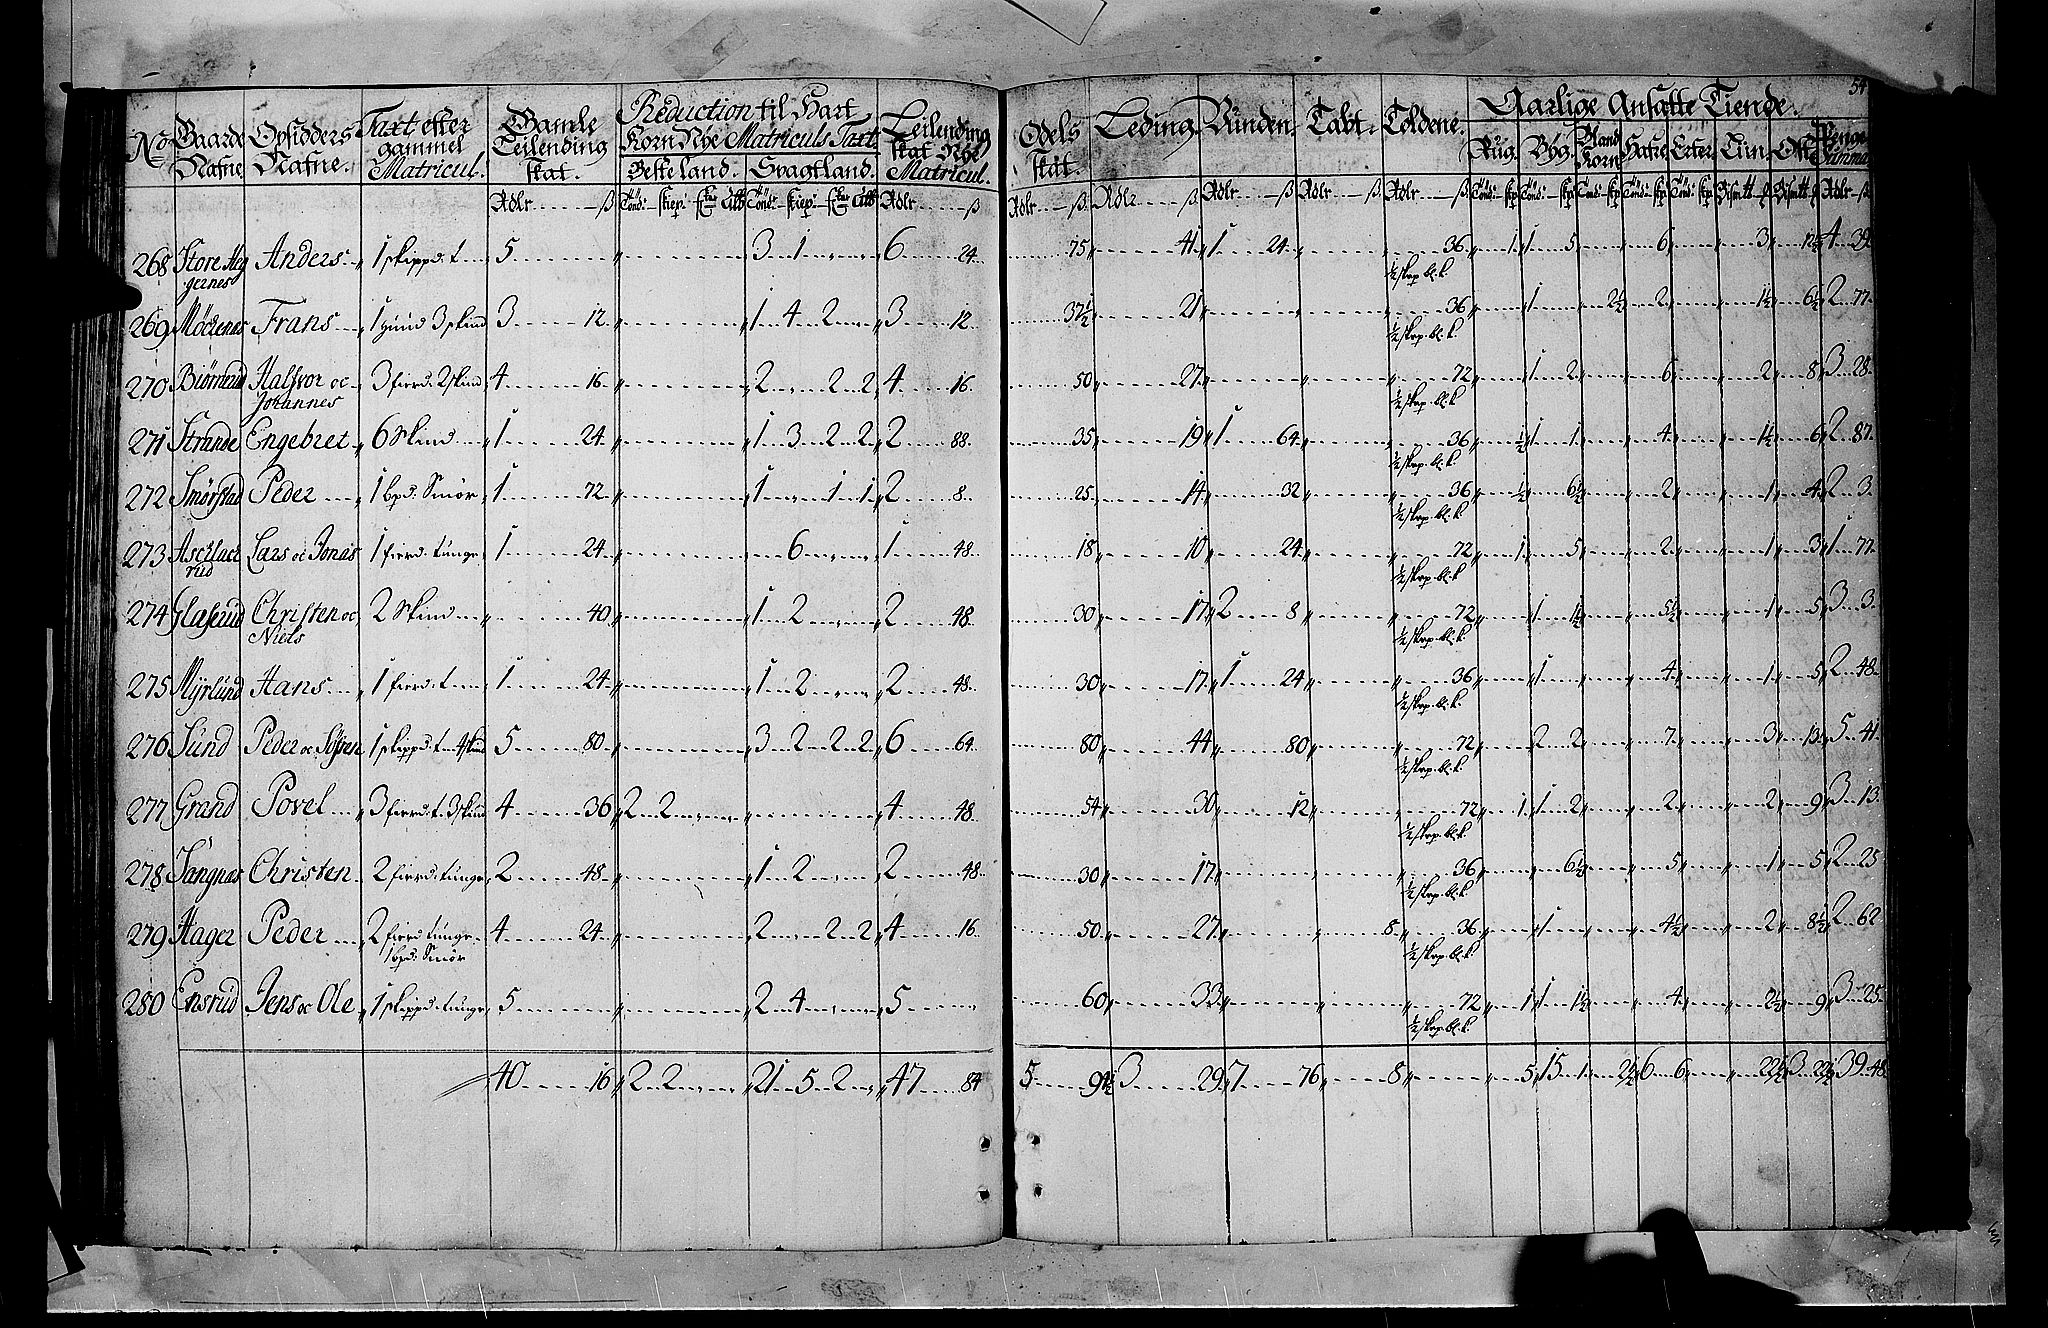 54
No Gaarde Nafne. Opsidders Nafne. Taxt efter gammel Matricul. Gamle Leilending skat. Reduction til Hart Korn Nye Matriculs Taxt. Leilending skat Nye Matricul. Odels skat. Leding. Vünden. Tabt. Toldene. Aarlige Ansatte Tiende.
Besteland. Svagtland. Rüg. Byg. Bland Korn Hafre Erter Penge Summa
Rdlr ß Tönd: skiep: Tönd: skiep: Rdlr ß Rdlr ß Rdlr ß Rdlr ß Rdlr ß Rdlr ß Tönd: skp Tönd: skp Tönd: skp Tönd: skp Tönd: skp Rdlr ß
268 Store Anders 1 skippd: t. 5 3 1 6 24. 75 41 1 24 36 1 1 5 6 3 12½ 4 39
gernes ½ skp. bl. k.
269 Frans 1 Hüüd 3 skind 3 12 1 4 2 3 12. 37½ 21 36 1 2½ 2 1½ 6½ 2 77.
½ skp. bl. k.
270 Biörnerud Halfvor oc 3 fierd: 2 skind 4 16 2 2 2 4 16. 50 27 72 1 2 6 2 8 3 28.
Johannes ½ skp. bl. k.
271 Strande Engebret 6 Skind 1 24 1 3 2 2 2 88. 35 19 1 64 36 ½ 1 1 4 1½ 6 2 87.
½ skp. bl. k.
272 Smörstad Peder 1 bpd: Smör 1 72 1 1 1 2 8. 25 14 32 36 ½ 6½ 2 1 4 2 3.
½ skp. bl. k.
273 Aschlack Lars oc Jonas 1 fierd: tünge 1 24 6 1 48. 18 10 24 72 1 5 2 1 3 1 77.
rud ½ skp. bl. k
274 Glaserud Christen oc 2 Skind 40 1 2 2 48. 30 17 2 8 72 1 1½ 5½ 1 5 3 3.
Niels ½ skp. bl. k.
275 Myrlünd Hans 1 fierd: t. 1 24 1 2 2 48. 30 17 1 24 36 1 4 1 5 2 48.
½ skp. bl. k.
276 Sünd Peder oc 1 skippd: t. 4 skind 5 80 3 2 2 2 6 64. 80 44 80 72 2 2 7 3 13 5 41.
½ skp. bl. k.
277 Grand Povel 3 fierd: t. 3 skind 4 36 2 2 4 48. 54 30 12 72 1 1 2 2 2 9 3 13.
½ skp. bl. k.
278 Sangnes Christen 2 fierd: tünge 2 48 1 2 2 48. 30 17 36 6½ 5 1 5 2 25
½ skp. bl. k.
279 Hager Peder 2 fierd tünge 4 24 2 2 2 4 16. 50 27 8 36 1 4½ 2 8½ 2 62
1 bpd: Smör ½ skp. bl. k.
280 Ensrüd Jens oc Ole 1 skippd: tünge 5 2 4 5 60 33 72 1 1 1½ 4 2½ 9 3 25.
½ skp. bl. k.
40 16 2 2 21 5 2 47 84 5 94½ 3 29 7 76 8 5 15 1 2½ 6 6 22½ 3 22½ 39 48